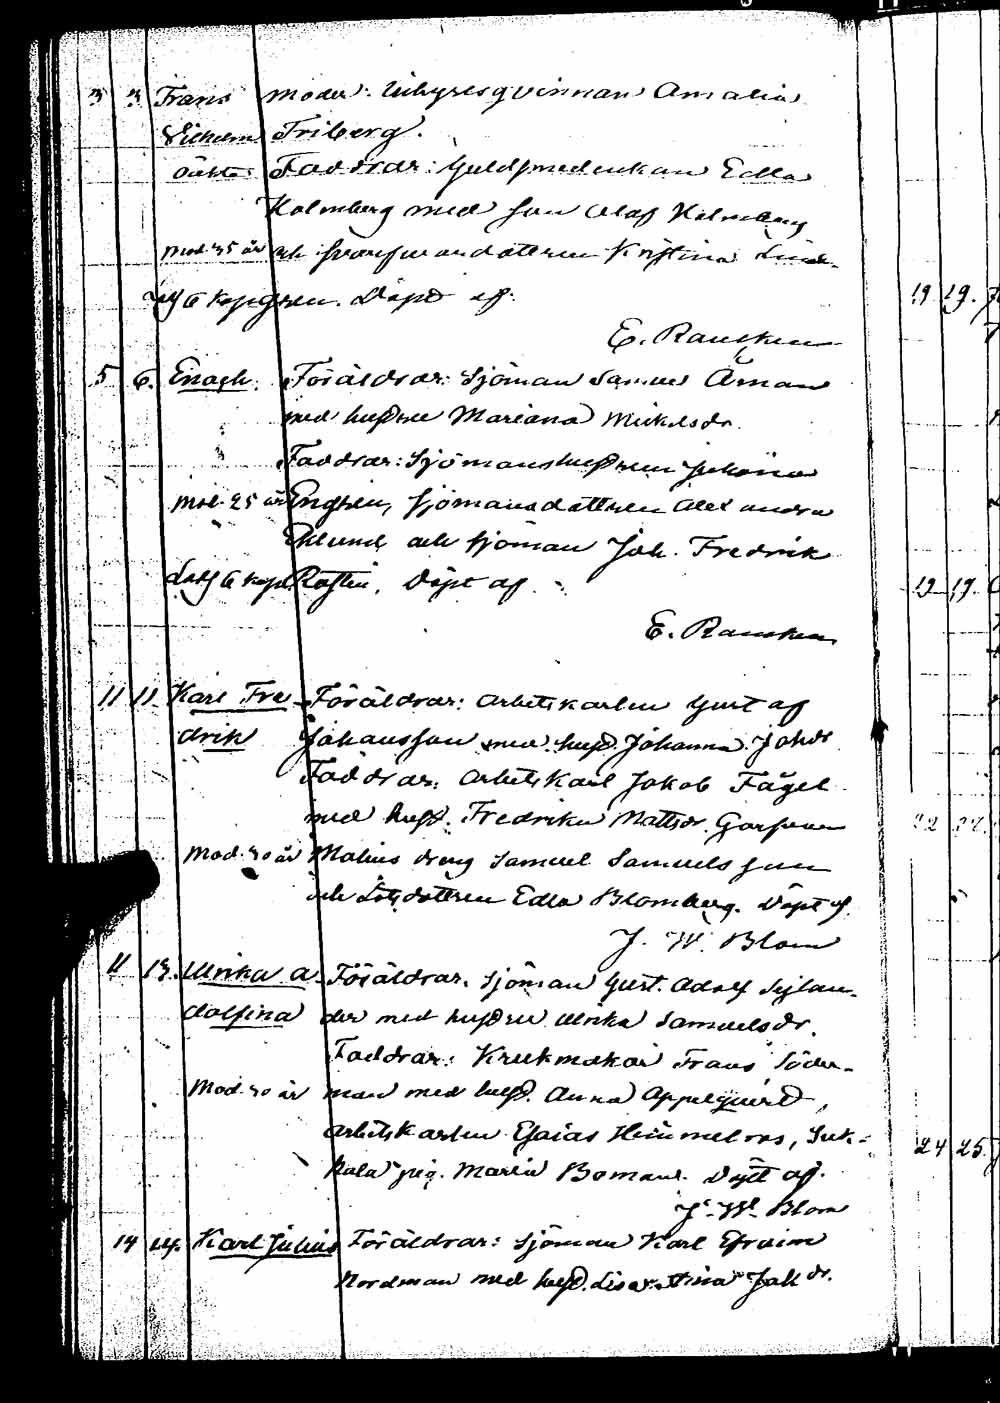 3 3 Frans Moder: Inhyresqvinnan Amalia
Vilhelm Friberg.
oäkta Faddrar: Guldsmedenkan Edla
Holmberg med son Olof Holmberg
Mod. 35 år och dottren Kristina Lind-
gren. Döpt af.
E. Rancken
5 6. Enoch. Föräldrar: Sjöman Samuel Öman
med hustru Mariana Mickelsdr.
Faddrar: Sjömanshustrun Johanna
Mod. 25 år Engren, Sjömansdottren Alexandra
Eklund och sjöman Joh. Fredrik
Döpt af
E. Rancken
11 11 Karl Fre- Föräldrar: Arbetskarlen Gust. af
drik Johansson med hust. Johanna Johdr
Faddrar: Arbetskarl Jakob Fågel
med hust. Fredrika Mattsdr.
Mod. 30 år Malms dreng Samuel Samuelsson
och Lotsdottren Edla Blomberg. Döpt af
J. W. Blom
11 13. Ulrika A- Föräldrar. Sjöman Gust. Adolf Sylan-
dolfina der med hustru Ulrika Samuelsdr.
Faddrar: Krukmakar Frans Söder-
Mod. 30 år man med hust. Anna Appelqvist,
Arbetskarlen Esaias Himmelroos,
pig. Maria Boman. Döpt af.
J. W. Blom
14 14. Karl Julius Föräldrar: Sjöman Karl Efraim
Nordman med hust. Lisa Stina Joh dr.
19 19.
19 19.
22 22.
24 25